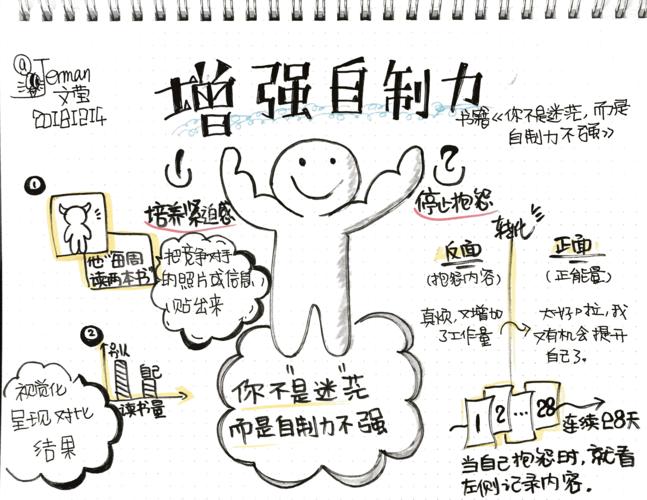 @Jerman
文莹
20181214
增强自制力
书籍《你不是迷茫,而是
自制力不强》
1
培养紧迫感
①
他“每周
读两本书”
把竞争对手
的照片或信息
贴出来
②
别人
自己
读书量
视觉化
呈现对比
结果
“你不是迷茫
而是自制力不强
2
停止抱怨
转化
反面
(抱怨内容)
正面
(正能量)
真烦,又增加
了工作量
太好啦,我
又有机会提升
自己了。
1 2 … 28
连续28天
当自己抱怨时,就看
左侧记录内容。